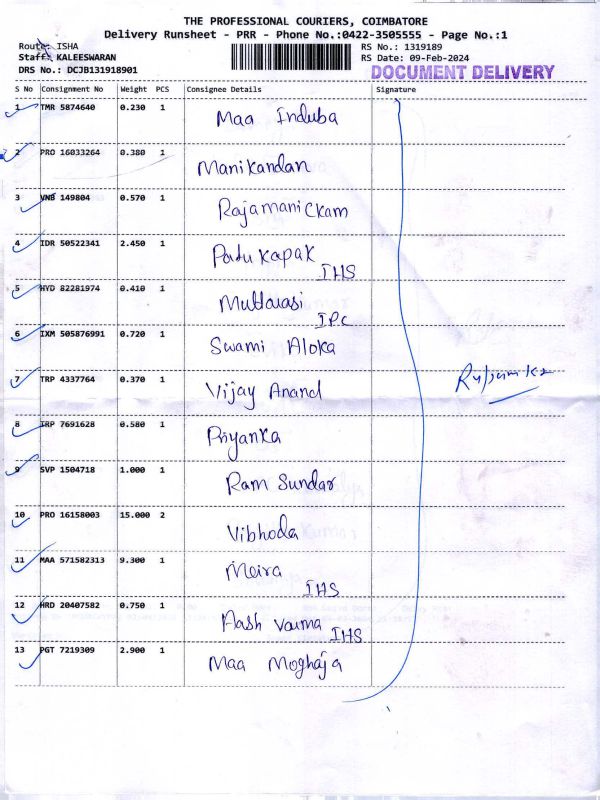 THE PROFESSIONAL COURIERS, COIMBATORE
Delivery Runsheet - PRR - Phone No.:0422-3505555 - Page No.:1
Route: ISHA
RS No.: 1319189
Staff: KALEESWARAN
RS Date: 09-Feb-2024
DRS No.: DCJB131918901
DOCUMENT DELIVERY
S No Consignment No Weight PCS Consignee Details Signature
1 TMR 5874640 0.230 1 Maa Induba
2 PRO 16033264 0.380 1 Manikandan
3 VNB 149804 0.570 1 Rajamanickam
4 IDR 50522341 2.450 1 Padukapak
IHS
5 HYD 82281974 0.410 1 Muttarasi
IPC
6 IXM 505876991 0.720 1 Swami Aloka
7 TRP 4337764 0.370 1 Vijay Anand
8 TRP 7691628 0.580 1 Priyanka
9 SVP 1504718 1.000 1 Ram Sundar
10 PRO 16158003 15.000 2 Vibhoda
11 MAA 571582313 9.300 1 Meira
IHS
12 HRD 20407582 0.750 1 Aash Varma
IHS
13 PGT 7219309 2.900 1 Maa Moghaja